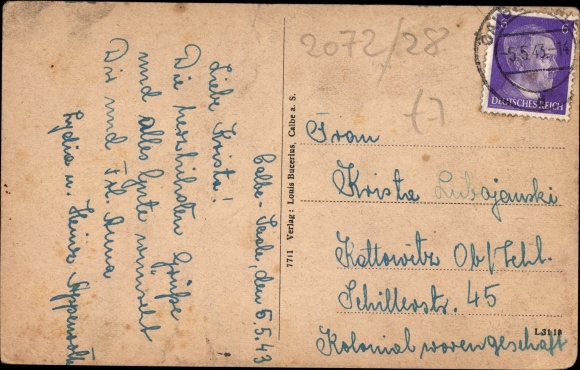 Calbe-Saale, den 6.5.43
Liebe Krista!
Die herzlichsten Grüße
und alles Gute wünscht
Dir und Frl. Anna
Lydia u. Heinz
7711 Verlag: Louis Bucerius, Calbe a. S.
2072/28
5.5.43.-14
6 6
DEUTSCHES REICH
Frau
Krista Lubojanski
Kattowitz Ob/Schl.
Schillerstr. 45
L 3118
Kolonialwarengeschäft